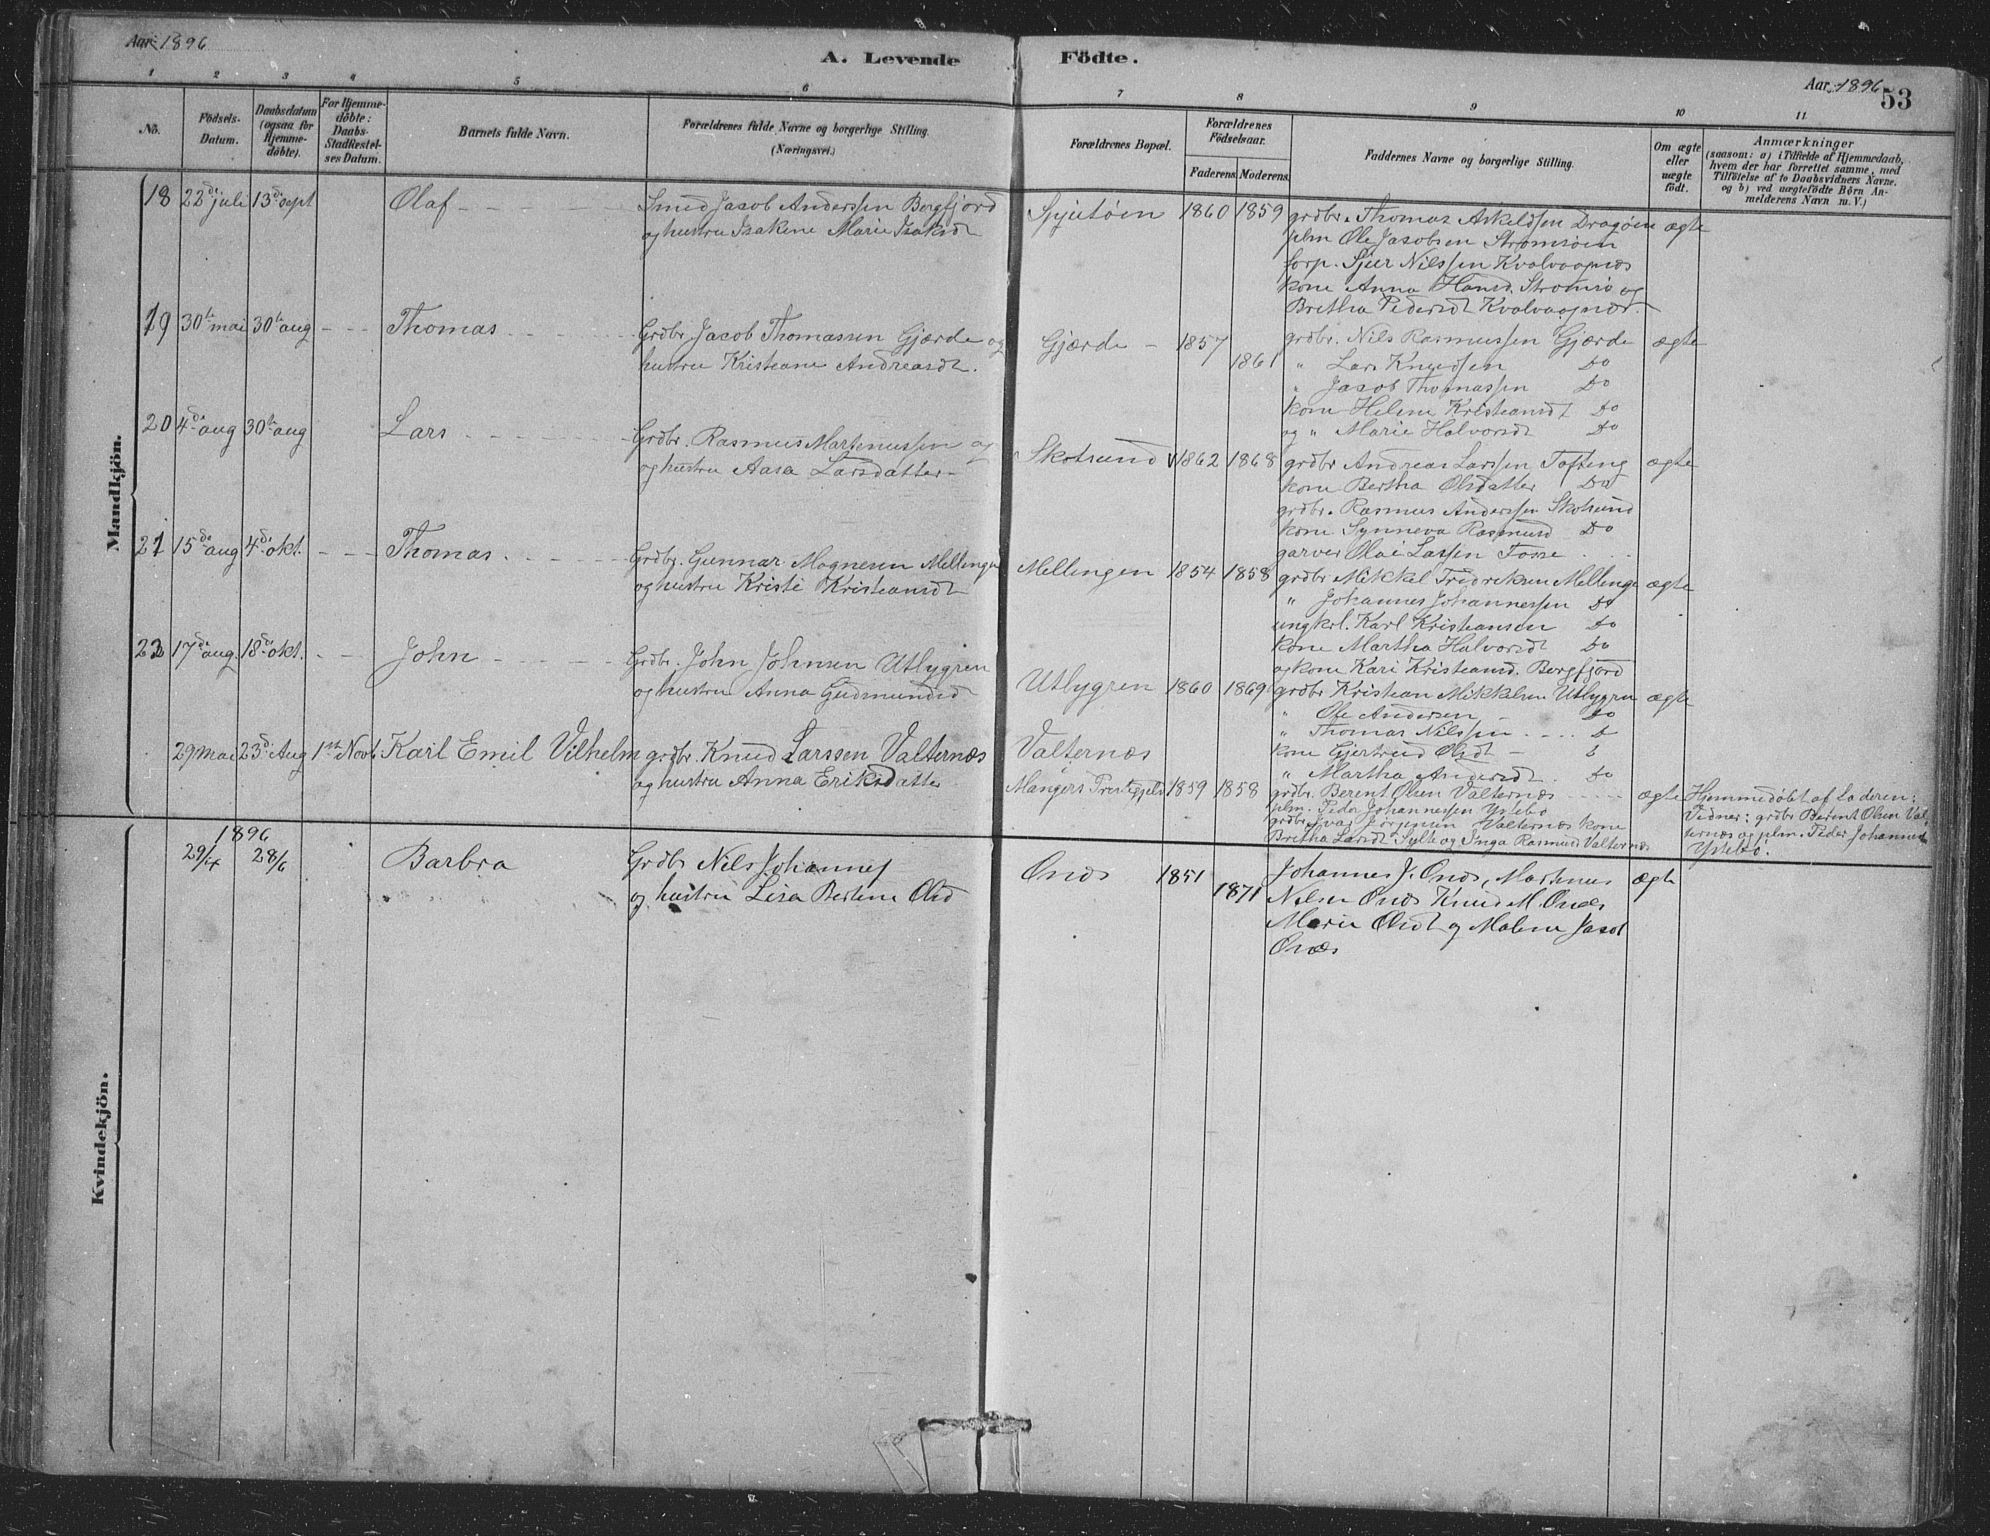 Aar 1896
A. Levende Födte.
Aar 1896
53
1 2 3 4 5 6 7 8 9 10 11
No.
Födsels-Datum.
Daabsdatum (ogsaa for Hjemme-döbte).
For Hjemme-döbte: Daabs-Stadfæstel-ses Datum.
Barnets fulde Navn.
Forældrenes fulde Navne og borgerlige Stilling.
(Næringsvei.)
Forældrenes Bopæl.
Forældrenes Födselsaar.
Faderens. Moderens.
Faddernes Navne og borgerlige Stilling.
Om ægte eller uægte födt.
Anmærkninger
(saasom: a) i Tilfælde af Hjemmedaab,
hvem der har forrettet samme, med
Tilföielse af to Daabsvidners Navne.
og b) ved uægtefödte Börn An-
melderens Navn m. V.)
Mandkjön.
18 22de juli 13de sept Olaf
Smed Jacob Anderssen Bergfjord
og hustru Isakine Marie Isaksdt
Spjutöien 1860 1859
grdbr. Thomas Askeldsen Dragöien ægte
plm Ole Jacobsen Strömsöien
forp. Sjur Nilssen Kvalvaagnæs
kone Anna Hansd. Strömsö og
Bretha Pedersdt Kvalvaagnæs.
19 30te mai 30te aug Thomas
Grdbr. Jacob Thomassen Gjærde og
hustru Kristiane Andreasdt.
Gjærde 1857 1861
grdbr. Nils Rasmussen Gjærde ægte
" Lars Knudsen Do
" Jacob Thomassen Do
kone Helene Kristiansdt Do
og " Marie Halvorsdt Do
20 4de aug 30te aug Lars
Grdbr. Rasmus Martinussen og
og hustru Aasa Larsdatter
Skotsund 1862 1868
grdbr Andreas Larssen Tofteng ægte
kone Bertha Olsdatter Do
grdbr. Rasmus Anderssen Skotsund
kone Synneva Rasmusd Do
garver Olai Larsen Fosse
21 15de aug 4de okt. Thomas
Grdbr. Gunnar Mognesen Mellinge
og hustru Kristi Kristiansdt
Mellingen 1854 1858
grdbr Mikkel Fredriksen Mellinge ægte
" Johannes Johannessen Do
ungkrl. Karl Kristiansen Do
kone Martha Halvorsdt Do
og kone Kari Kristiansd. Bergfjord
22 17de aug. 18de okt. John
Grdbr. John Johnsen Utbygren
og hustru Anna Gudmundsd
Utbygren 1860 1869
grdbr Kristian Mikkelsen Utbygren ægte
" Ole Andersen Do
" Thomas Nilssen Do
kone Gjertrud Olsdt
" Martha Andersdt. Do
29 Mai 23de Aug 1ste Novb Karl Emil Vilhelm
grdbr. Knud Larssen Valternæs
og hustru Anna Eriksdatter
Valternæs
Mangers Prestegjeld 1859 1858
grdbr. Berent Olsen Valternæs ægte
plm. Peder Johannessen Ystebö
grdbr. Ivar Jörgensen Valternæs kone
Bretha Larsdt Sylte og Inga Rasmusd Valternæs
Hjemmedöbt af Faderen:
Vidner: grdbr Berent Olsen Val-
ternæs og plm. Peder Johannes
Ystebö.
Kvindekjön.
1896
29/4 28/6 Barbra
Grdbr Nils Johannes
og hustru Lisa Bertine Olsd
Onæs 1851 1871
Johannes J. Onæs, Martinus ægte
Nilsen Onæs Knud M. Onæs
Marie Olsdt og Malene Jacobs
Onæs